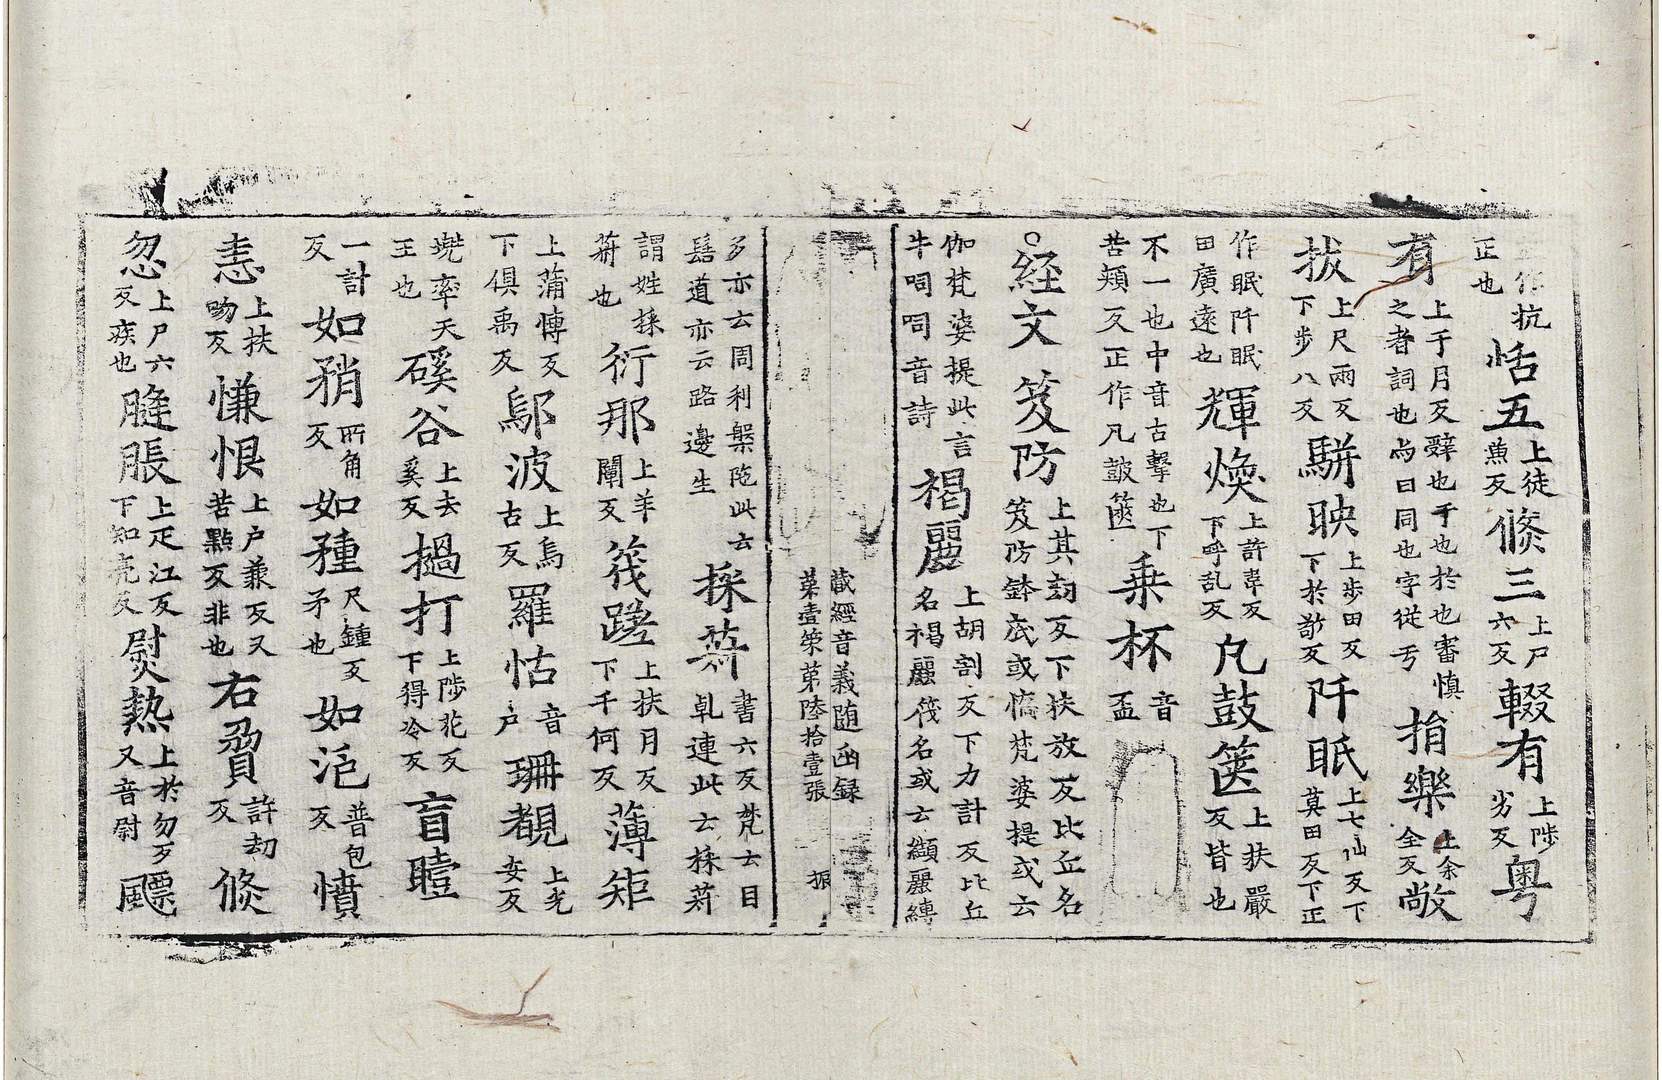 作抗正也恬五上徒𤋎反倏三上尸六反輟有上陟劣反粤
有上于月反辝也于也於也審慎之者詞也尚曰同也字從亐捐樂上余全反敞
拔上尺雨反下步八反駢映上步田反下於敬反阡眠上七仙反下莫田反下正
作眠阡眠田廣遠也輝煥上許韋反下呼乱反凡鼓篋上扶嚴反皆也
不一也中音古擊也下苦頰反正作凡皷篋乗杯音盃
○経文笈防上其劫反下扶放反比丘名笈防鉢底或憍梵婆提或云
伽梵婆提此言牛呞呞音詩褐麗上胡割反下力計反比丘名褐麗筏名或云纈麗縛
藏經音義随函録
第壹策第陸拾壹張 振
多亦云周利槃陁此云髻道亦云路邊生採菥書六反梵云目乹連此云採菥
謂姓採菥也衍那上羊闡反筏蹉上扶月反下千何反薄矩
上蒲愽反下俱禹反鄔波上烏古反羅怙音户珊覩上先安反
堯率天王也磎谷上去奚反撾打上陟花反下得冷反盲瞎
一計反如矟所角反如種尺鍾反矛也如浥普包反憤
恚上扶吻反慊恨上户兼反又苦㸃反非也右貧許刼反倏
忽上尸六反疾也胮脹上疋江反下知亮反熨熱上於勿反又音尉飄